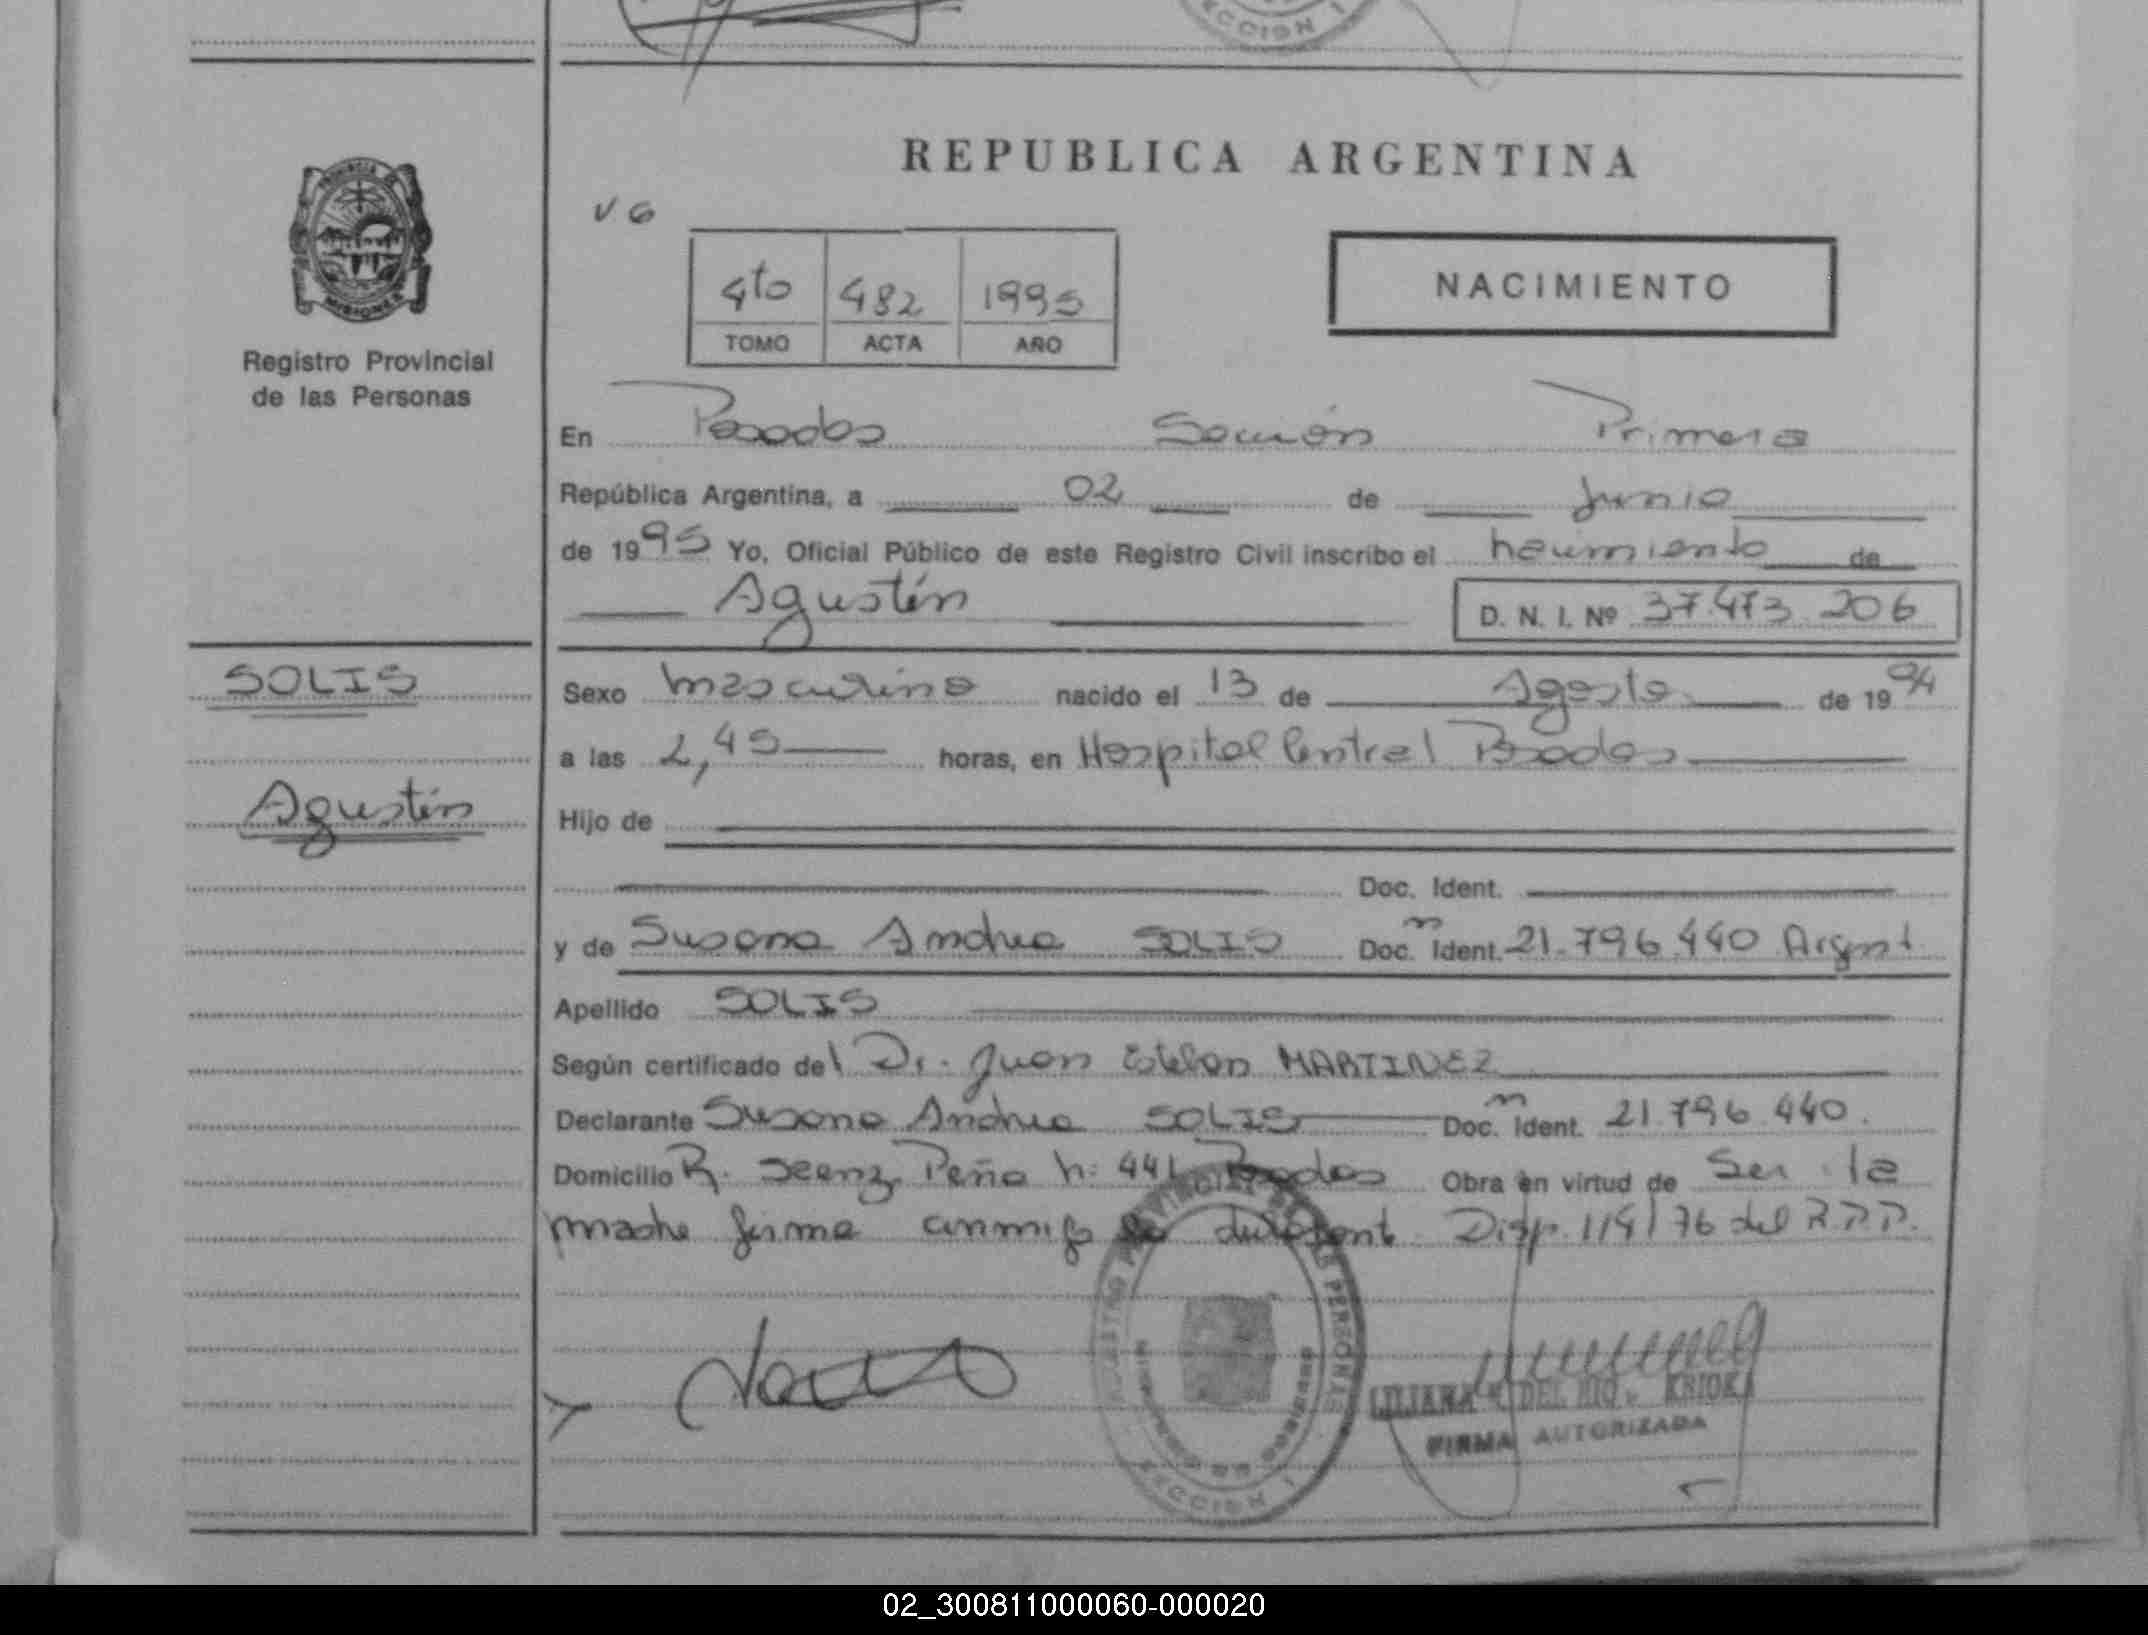 SECCION 1
REPUBLICA ARGENTINA
V 6
4to 482 1995
TOMO ACTA AÑO
NACIMIENTO
PROVINCIA DE
MISIONES
Registro Provincial
de las Personas
En Posadas Sección Primera
República Argentina, a 02 de Junio
de 1995 Yo, Oficial Público de este Registro Civil inscribo el nacimiento de
Agustín
D. N. I. Nº 37.473.206
SOLIS
Agustín
Sexo masculino nacido el 13 de Agosto de 1994
a las 2,45 horas, en Hospital Central Posadas
Hijo de
Doc. Ident.
y de Susana Andrea SOLIS Doc. Ident. 21.796.440 Argent
Apellido SOLIS
Según certificado del Dr. Juan Esteban MARTINEZ
Declarante Susana Andrea SOLIS Doc. Ident. 21.796.440.
Domicilio R. Saenz Peña n: 441 Posadas Obra en virtud de Ser la
madre firma conmigo Disp. 114/76 del R.P.P.
REGISTRO PROVINCIAL DE LAS PERSONAS
SECCION 1
LILIANA DEL RIO KRIOKA
FIRMA AUTORIZADA
02_300811000060-000020